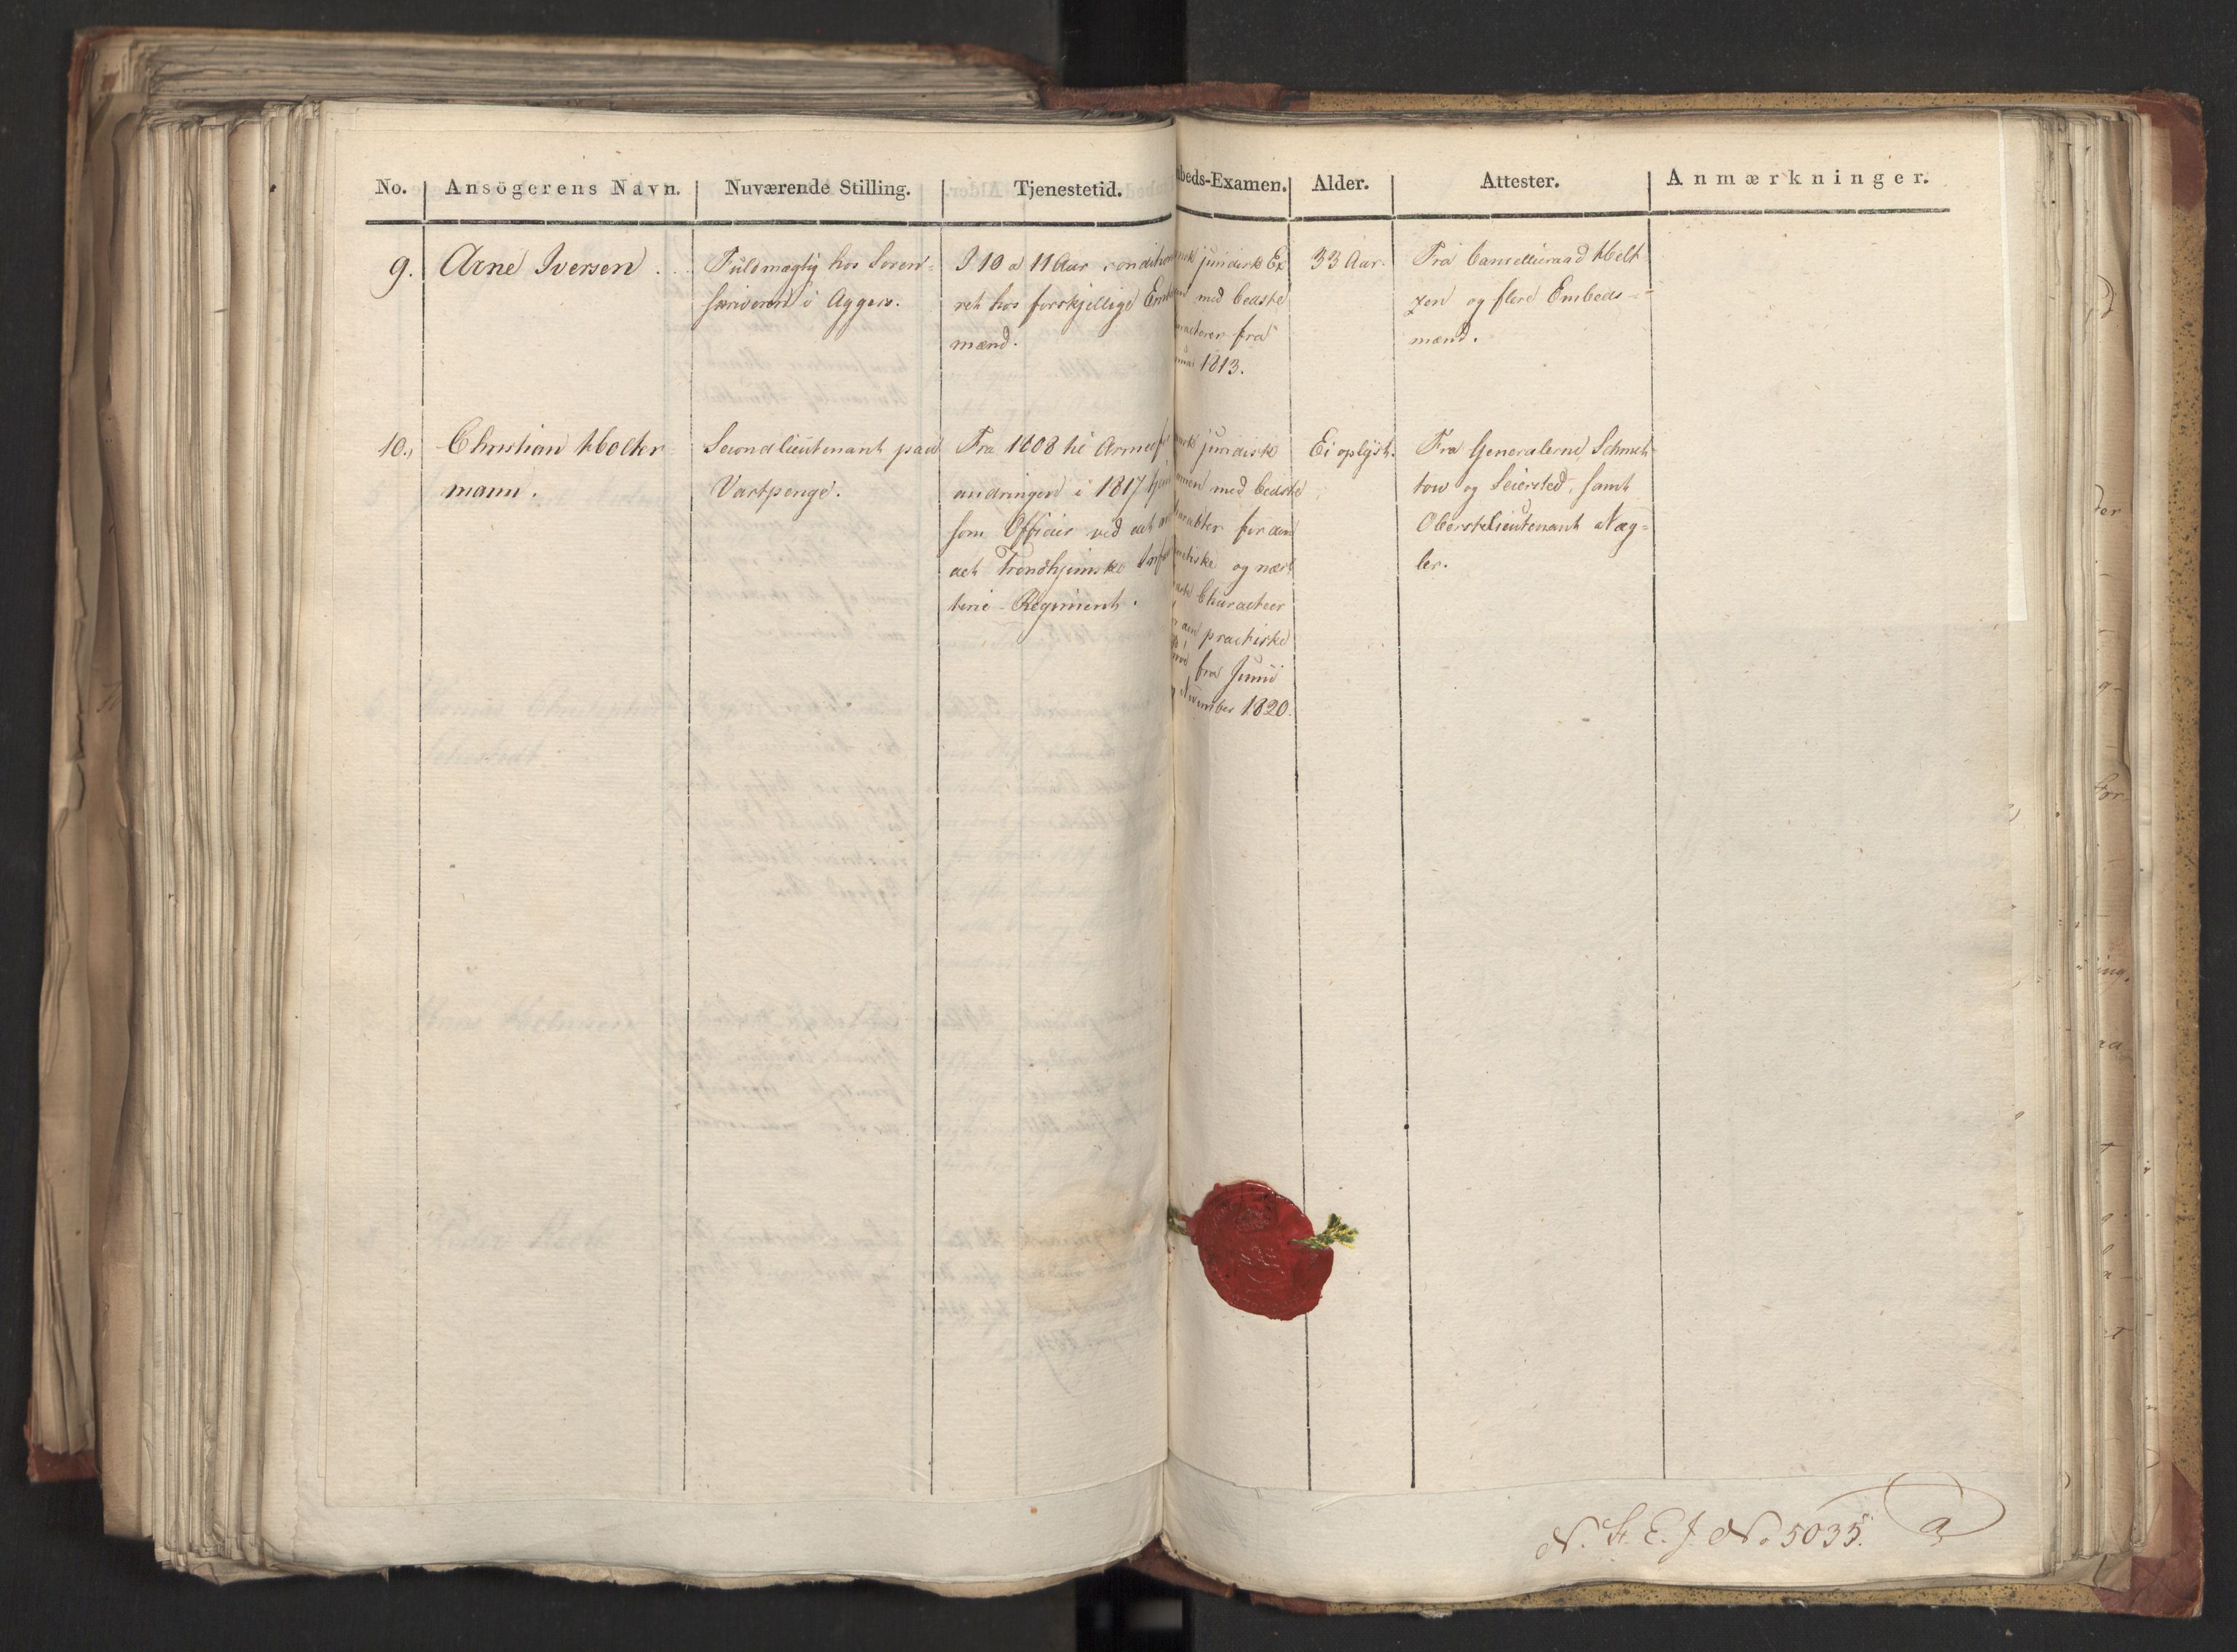 No. Ansögerens Navn. Nuværende Stilling. Tjenestetid. beds-Examen. Alder. Attester. Anmærkninger.
9. Arne Iversen.
Fuldmægtig hos Soren-
skriveren i Aggers.
I 10 a 11 Aar conditio
ret hos forskjellige Em
mænd.
juridisk Ex
med bedste
fra
1813.
33 Aar.
Fra Cancelliraad Melt
zen og flere Embeds-
mænd.
10., Christian Molter
mann.
Secondlieutenant paa
Vartpenge.
Fra 1808 til Armeef
andringen i 1817 tjen
som Officier ved det
det Trondhjemske Infan
terie-Regiment.
juridisk
amen med bedste
aracter for den
og næst
Characteer
den practiske
fra Junii
November 1820.
Ei oplyst.
Fra Generalerne Schmet-
tow og Seiersted, samt
Oberstelieutenant Næg-
ler.
N. S. E. J. No 5035. a